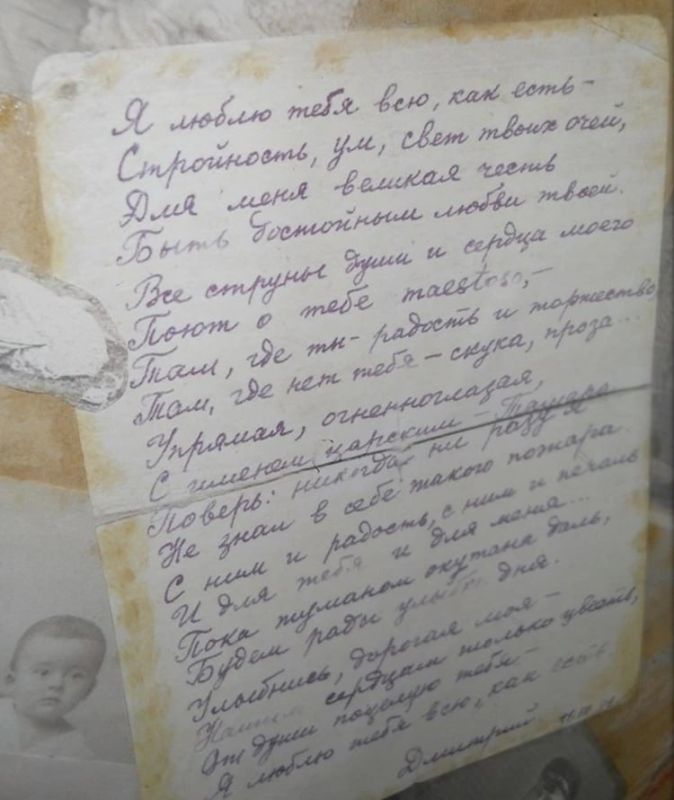 Я люблю тебя всю, как есть –
Стройность, ум, свет твоих очей,
Для меня великая честь
Быть достойным любви твоей.
Все струны души и сердца моего
Поют о тебе maestoso, –
Там, где ты – радость и торжество
Там, где нет тебя – скука, проза...
Упрямая, огненноглазая,
С именем царским – Тамара
Поверь: никогда ни разу я
Не знал в себе такого пожара.
С ним и радость, с ним и печаль
И для тебя и для меня...
Пока туманом окутана даль,
Будем рады улыбке дня.
Улыбнись, дорогая моя –
Нашим сердцам только цвести,
От души поцелую тебя –
Я люблю тебя всю, как есть
Дмитрий